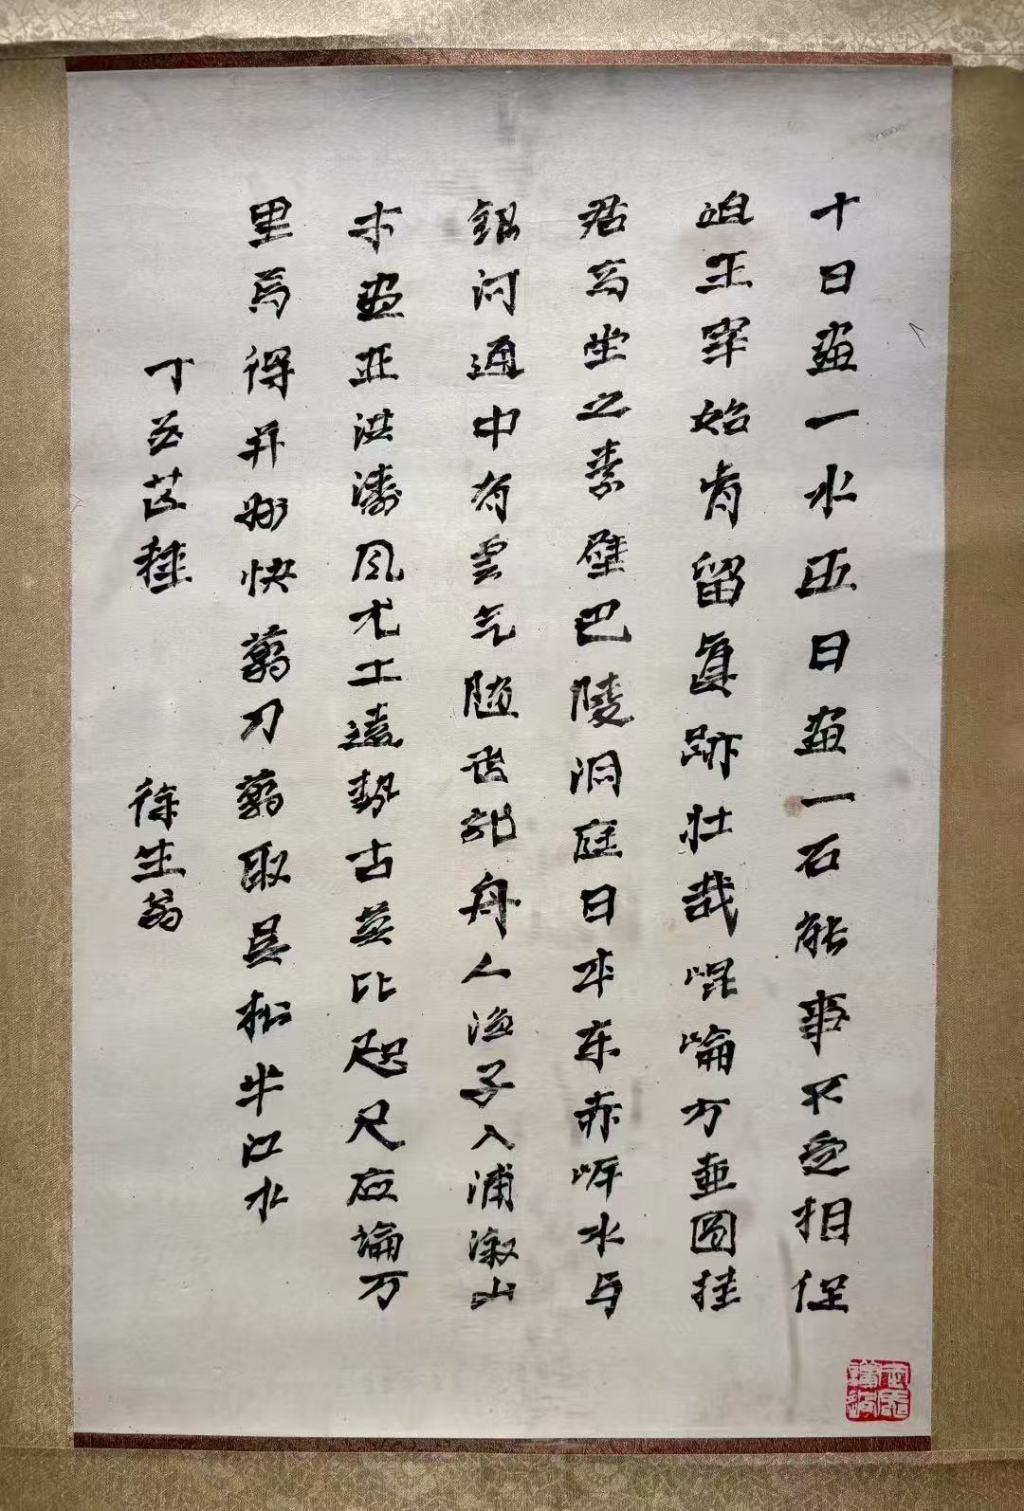 十日畫一水五日畫一石能事不受相促
迫王宰始肯留眞跡壮哉崐崘方壺图挂
君高堂之素壁巴陵洞庭日本东赤岸水与
銀河通中有雲气随飞龍舟人渔子入浦溆山
木盡亚洪濤风尤工遠勢古莫比咫尺应論万
里焉得并州快剪刀剪取吴松半江水
丁丑芒種 徐生翁